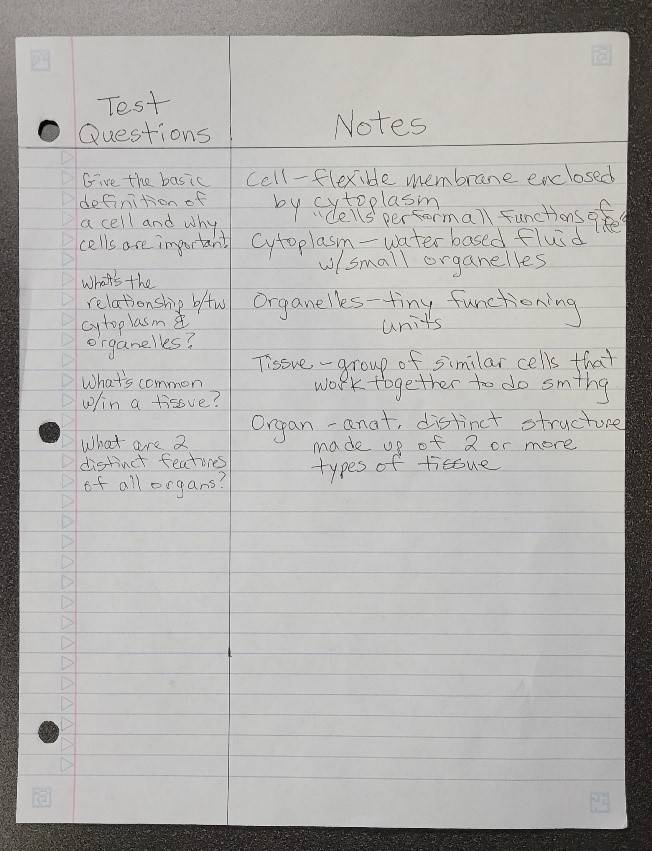 Test
Questions
Notes
Give the basic
definition of
a cell and why
cells are important
What's the
relationship b/tw
cytoplasm &
organelles?
What's common
w/in a tissue?
What are 2
distinct features
of all organs?
Cell - flexible membrane enclosed
by cytoplasm
"cells perform all functions of
life"
Cytoplasm - water based fluid
w/small organelles
Organelles - tiny functioning
units
Tissue - group of similar cells that
work together to do smthg
Organ - anat. distinct structure
made up of 2 or more
types of tissue